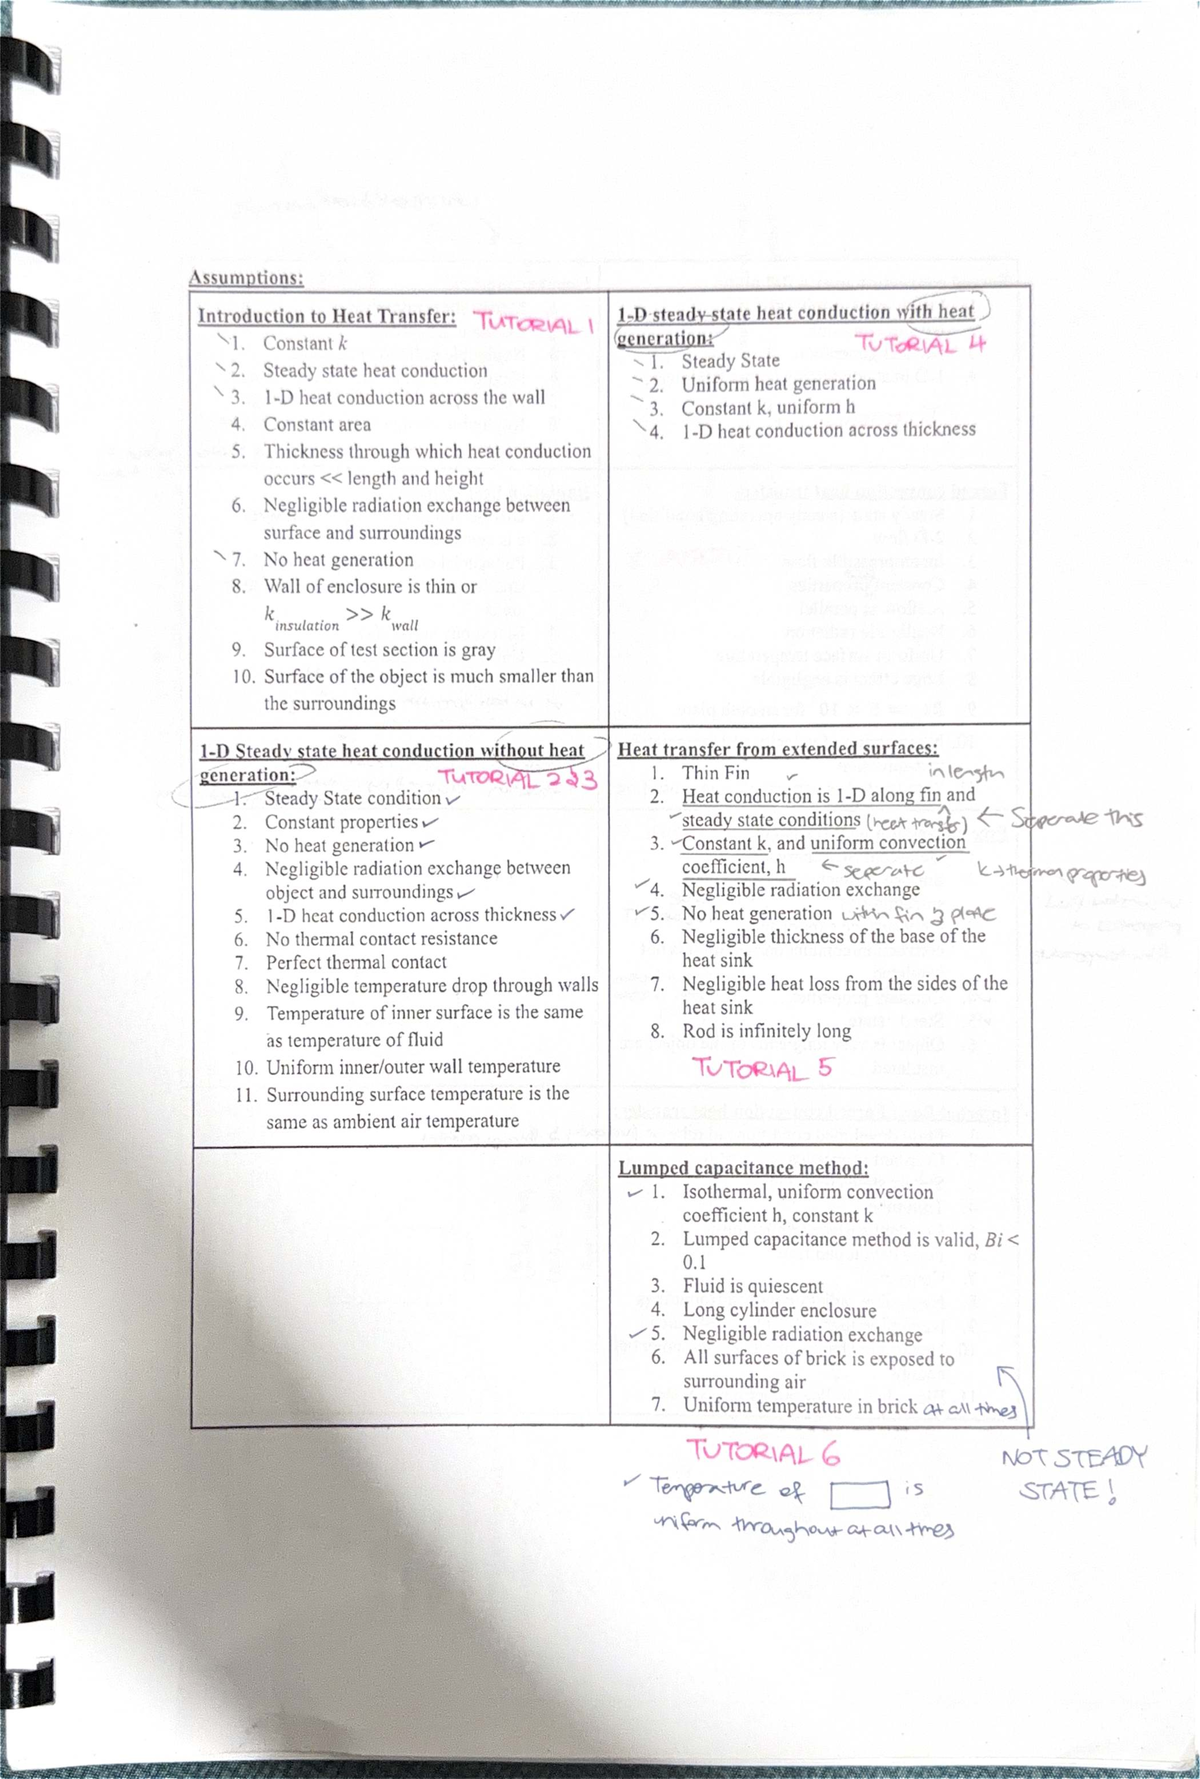 Assumptions:
Introduction to Heat Transfer: TUTORIAL 1
1. Constant k
2. Steady state heat conduction
3. 1-D heat conduction across the wall
4. Constant area
5. Thickness through which heat conduction
occurs << length and height
6. Negligible radiation exchange between
surface and surroundings
7. No heat generation
8. Wall of enclosure is thin or
k insulation >> k wall
9. Surface of test section is gray
10. Surface of the object is much smaller than
the surroundings
1-D steady-state heat conduction with heat
generation:
TUTORIAL 4
1. Steady State
2. Uniform heat generation
3. Constant k, uniform h
4. 1-D heat conduction across thickness
1-D Steady state heat conduction without heat
generation: TUTORIAL 2&3
1. Steady State condition
2. Constant properties
3. No heat generation
4. Negligible radiation exchange between
object and surroundings
5. 1-D heat conduction across thickness
6. No thermal contact resistance
7. Perfect thermal contact
8. Negligible temperature drop through walls
9. Temperature of inner surface is the same
as temperature of fluid
10. Uniform inner/outer wall temperature
11. Surrounding surface temperature is the
same as ambient air temperature
Heat transfer from extended surfaces:
1. Thin Fin in length
2. Heat conduction is 1-D along fin and
steady state conditions (heat transfer) ← Seperate this
3. Constant k, and uniform convection
coefficient, h ← seperate k → thermal properties
4. Negligible radiation exchange
5. No heat generation within fin & plate
6. Negligible thickness of the base of the
heat sink
7. Negligible heat loss from the sides of the
heat sink
8. Rod is infinitely long
TUTORIAL 5
Lumped capacitance method:
1. Isothermal, uniform convection
coefficient h, constant k
2. Lumped capacitance method is valid, Bi <
0.1
3. Fluid is quiescent
4. Long cylinder enclosure
5. Negligible radiation exchange
6. All surfaces of brick is exposed to
surrounding air
7. Uniform temperature in brick at all times
TUTORIAL 6
NOT STEADY
STATE!
Temperature of is
uniform throughout at all times